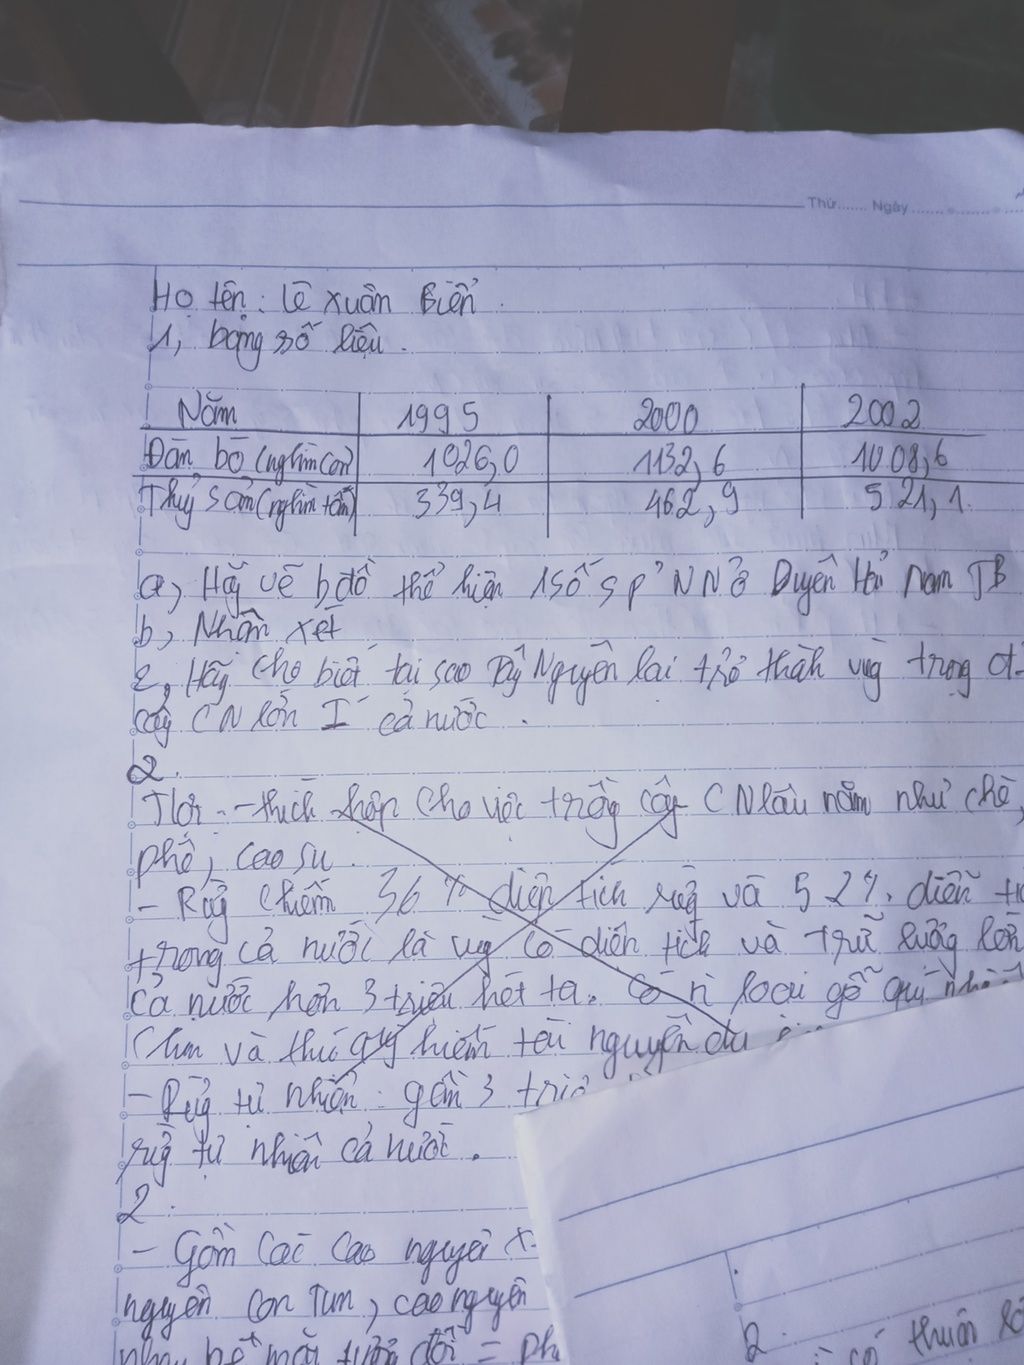 Thứ...... Ngày......
Họ tên: Lê Xuân Biển.
1, bảng số liệu.
Năm 1995 2000 2002
Đàn bò (nghìn con) 1026,0 1132,6 1008,6
Thuỷ sản (nghìn tấn) 339,4 462,9 521,1
a, Hãy vẽ b đồ thể hiện 1 số sp' NN ở Duyên Hải Nam TB
b, Nhận xét
2, Hãy cho biết tại sao Tây Nguyên lại trở thành vùg trọng
cây CN lớn I cả nước.
2.
- thích hợp cho việc trồng cây CN lâu năm như chè,
phê, cao su.
- Rừg chiếm 36% diện tích rừg và 52% diện
trong cả nước là vùg có diện tích và trữ lượng lớn
cả nước hơn 3 triệu héc ta. Có n loại gỗ quý
Chim và thú quý hiếm tài nguyên du
- Rừg tự nhiên: gồm 3
rừg tự nhiên cả nước.
2.
- Gồm các cao nguyên
nguyên Con Tum, cao nguyên
2.
có thuận